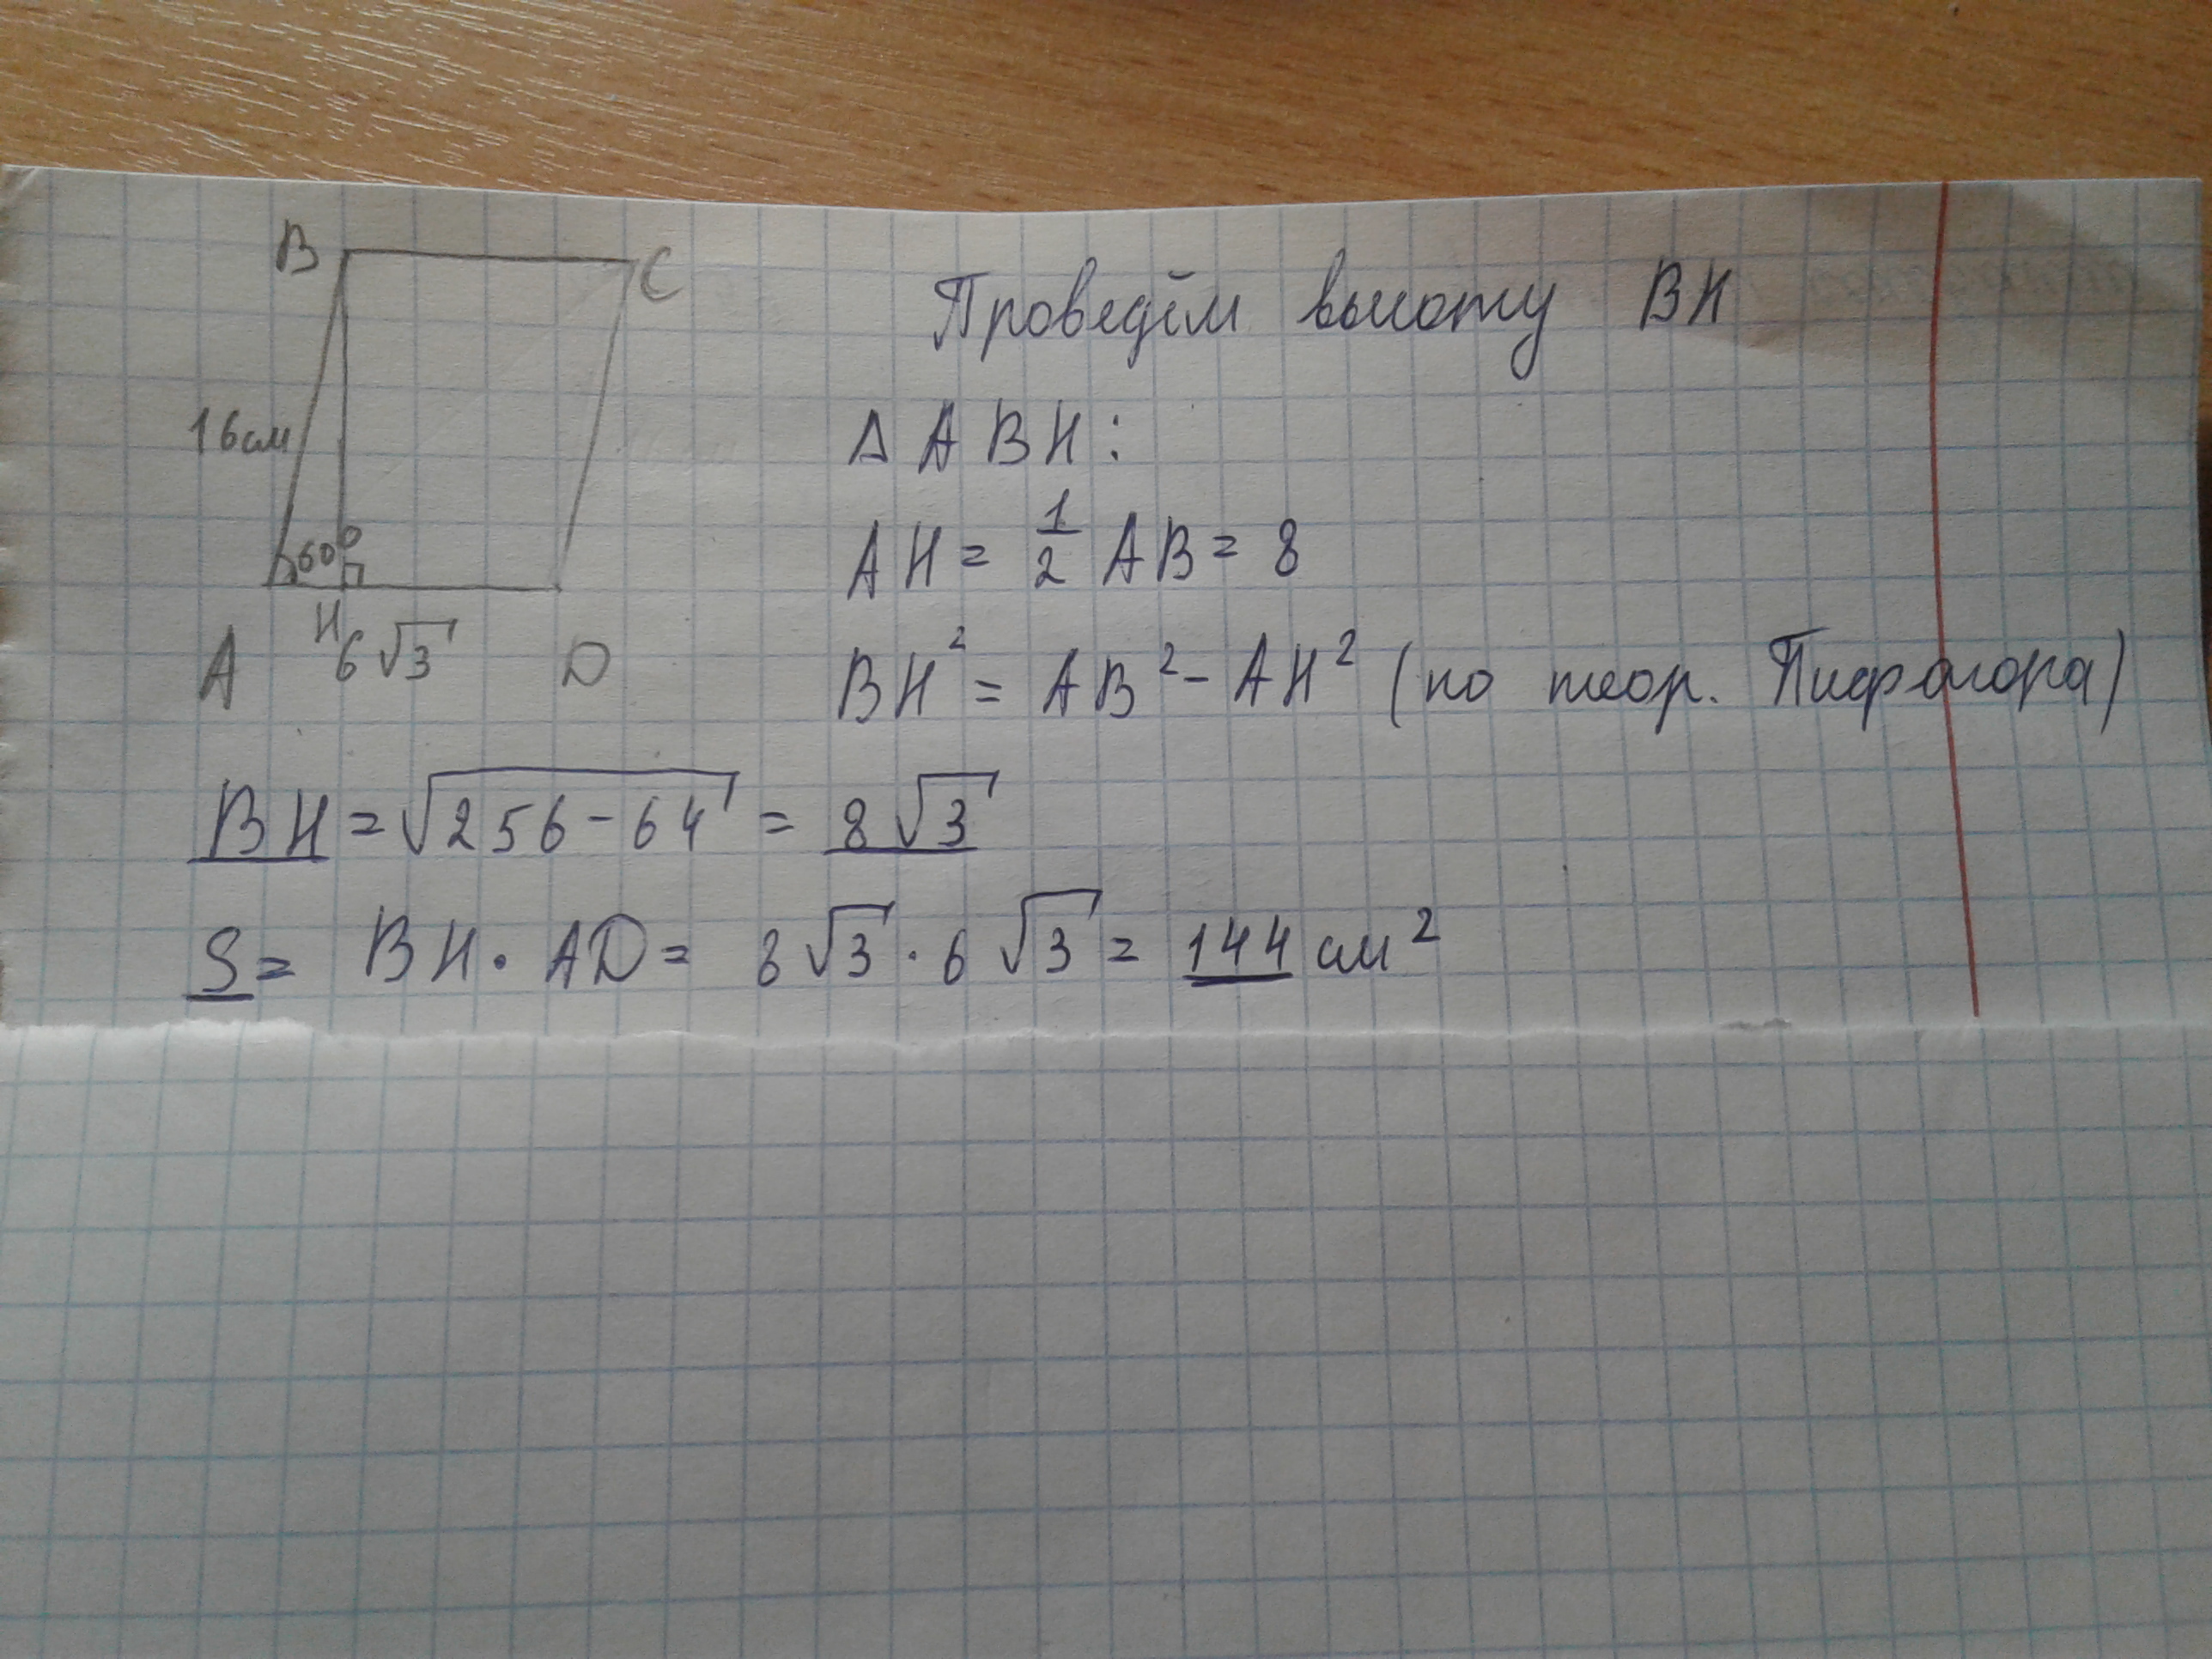 B
C
16см
60°
H
A
6√3
D
Проведём высоту BH
Δ ABH:
AH = 1/2 AB = 8
BH² = AB² - AH² (по теор. Пифагора)
BH = √256-64 = 8√3
S = BH · AD = 8√3 · 6√3 = 144 см²